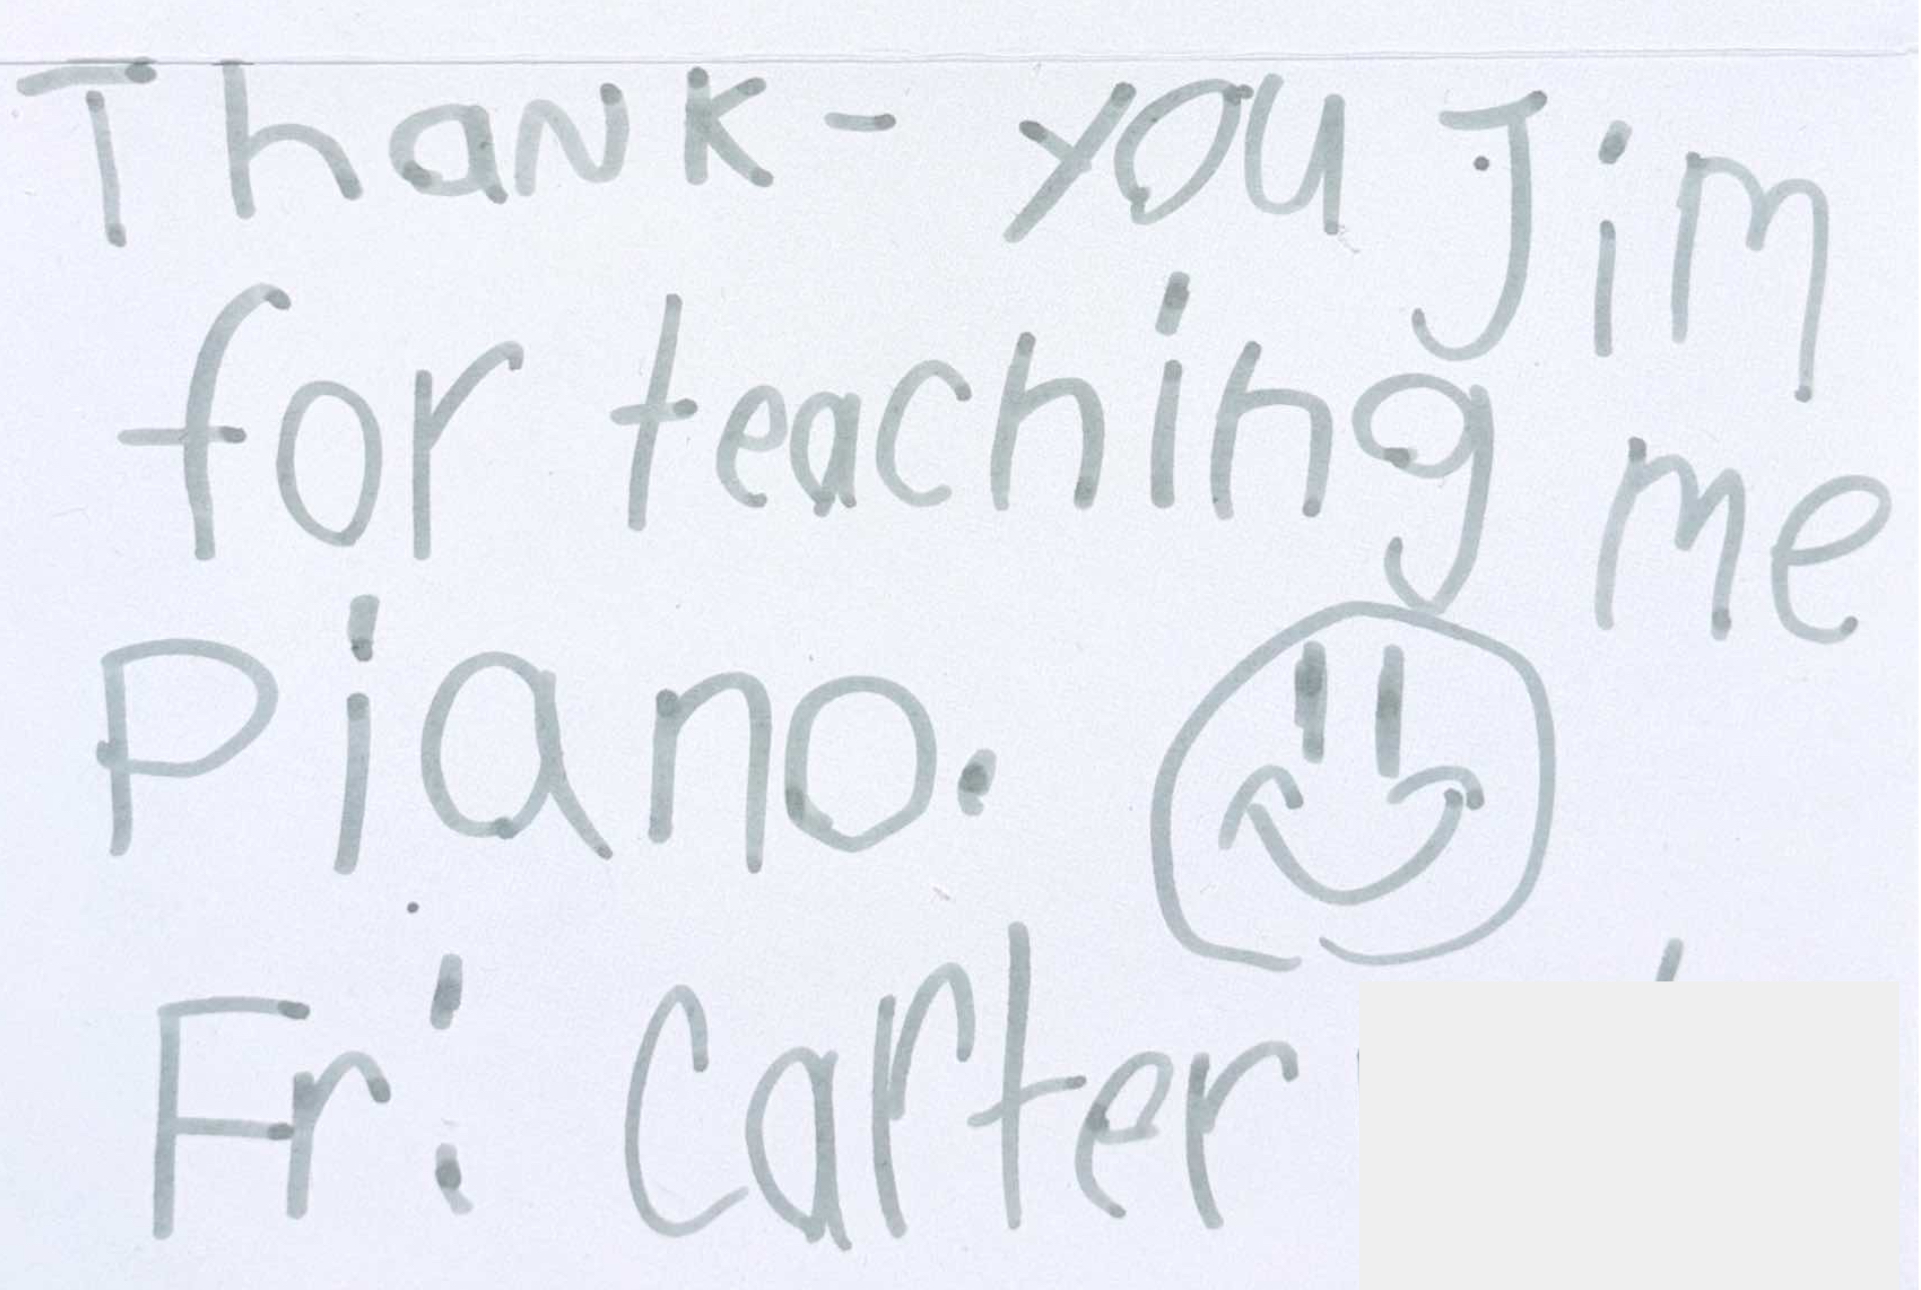 Thank-you Jim
for teaching me
Piano.
Fr: Carter